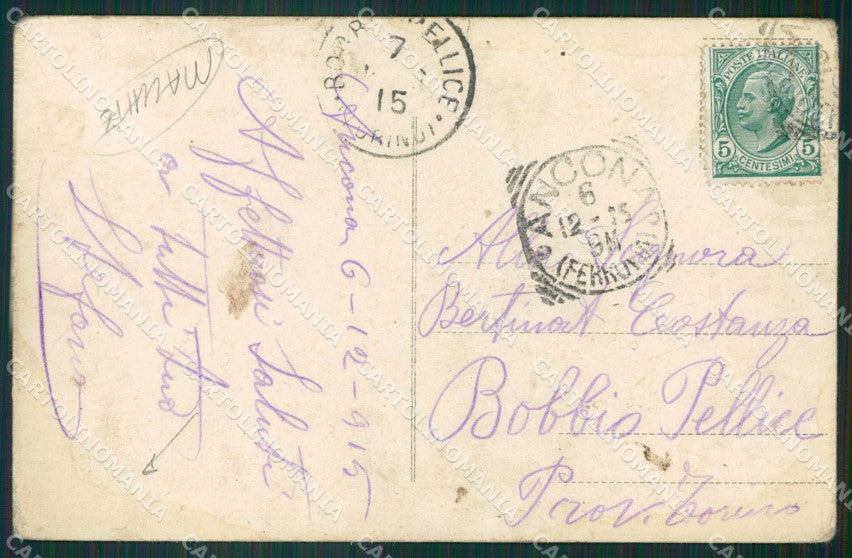 MALUNITE
Ancona 6-12-915
Affettuosi Saluti
a tutti tuo
Stefano
BOBBIO PELLICE
7
15
(TORINO)
POSTE ITALIANE
5 5
CENTESIMI
ANCONA
6
12-15
9M
(FERROVIA)
Alla Signora
Bertinat Costanza
Bobbio Pellice
Prov. Torino
CARTOLINOMANIA